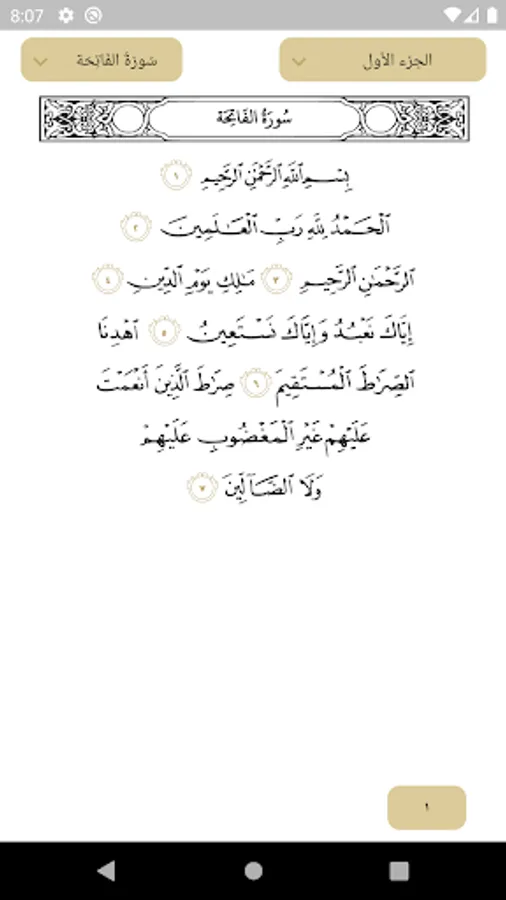 8:07
الجزء الأول
سُورَةُ الفَاتِحَة
سُورَةُ الفَاتِحَة
بِسْمِ ٱللَّهِ ٱلرَّحْمَٰنِ ٱلرَّحِيمِ ١
ٱلْحَمْدُ لِلَّهِ رَبِّ ٱلْعَٰلَمِينَ ٢
ٱلرَّحْمَٰنِ ٱلرَّحِيمِ ٣ مَٰلِكِ يَوْمِ ٱلدِّينِ ٤
إِيَّاكَ نَعْبُدُ وَإِيَّاكَ نَسْتَعِينُ ٥ ٱهْدِنَا
ٱلصِّرَٰطَ ٱلْمُسْتَقِيمَ ٦ صِرَٰطَ ٱلَّذِينَ أَنْعَمْتَ
عَلَيْهِمْ غَيْرِ ٱلْمَغْضُوبِ عَلَيْهِمْ
وَلَا ٱلضَّآلِّينَ ٧
١